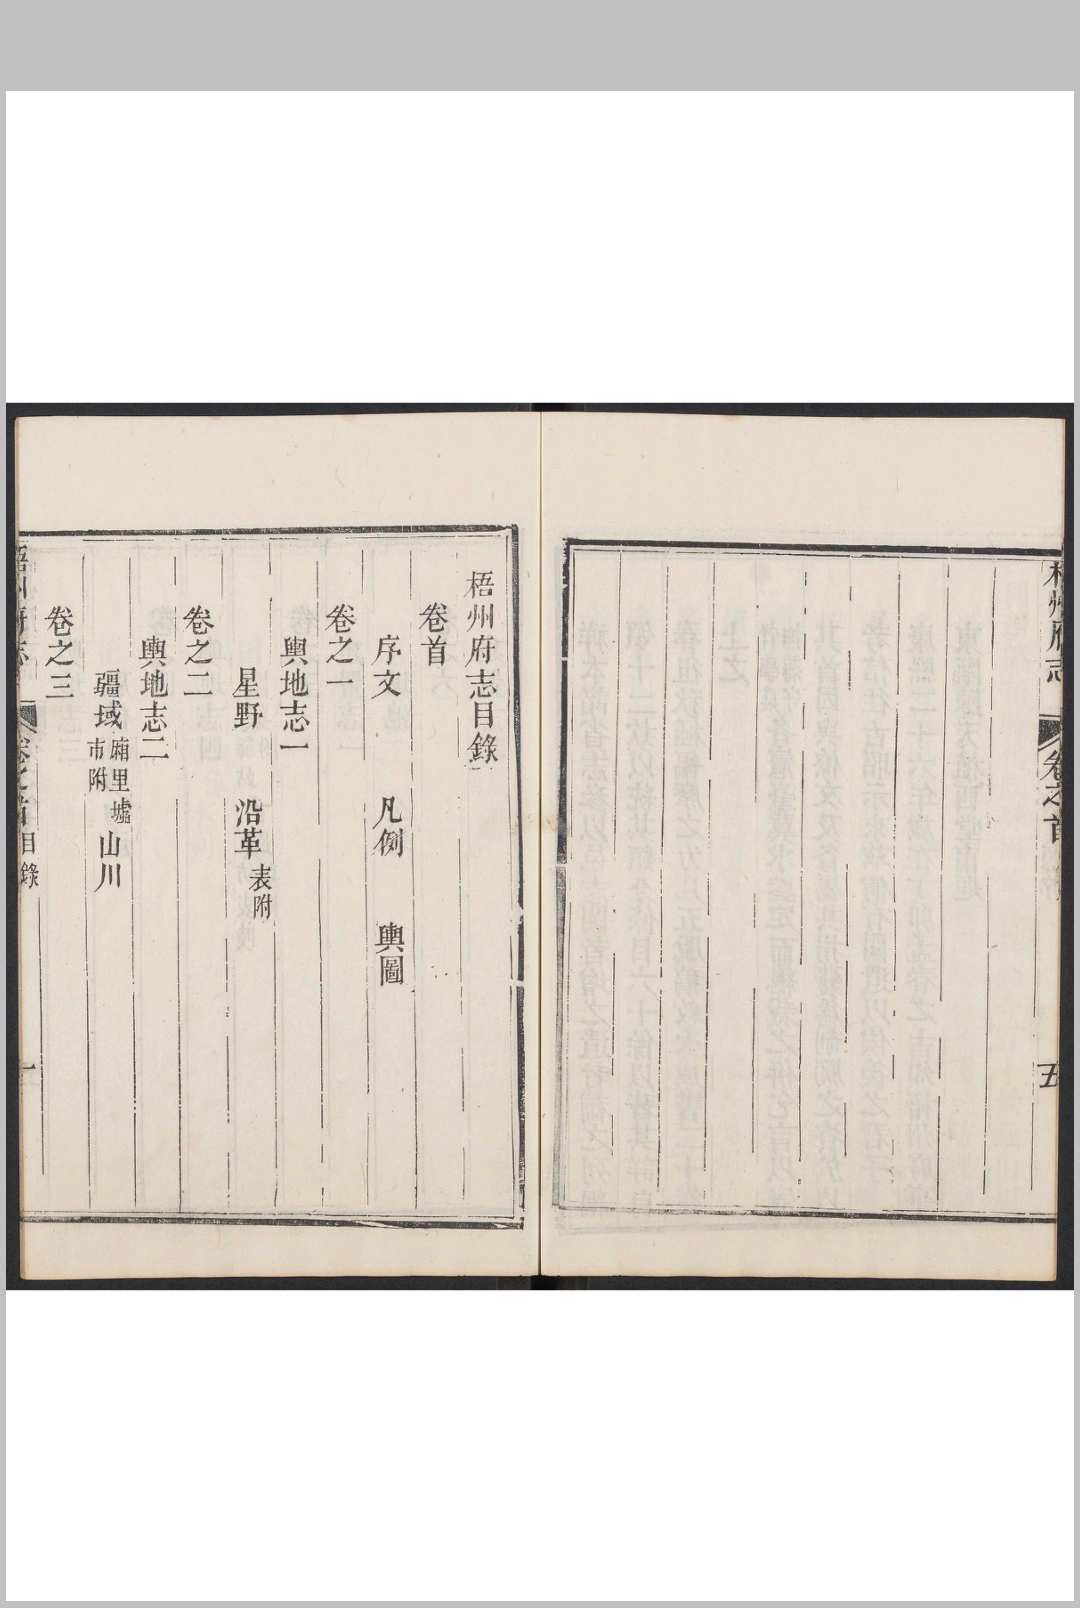 梧州府志
卷之首
五
梧州府志目錄
卷首
序文 凡例 輿圖
卷之一
輿地志一
星野 沿革表附
卷之二
輿地志二
疆域廂里墟市附 山川
卷之三
梧州府志
卷之首
目錄
一